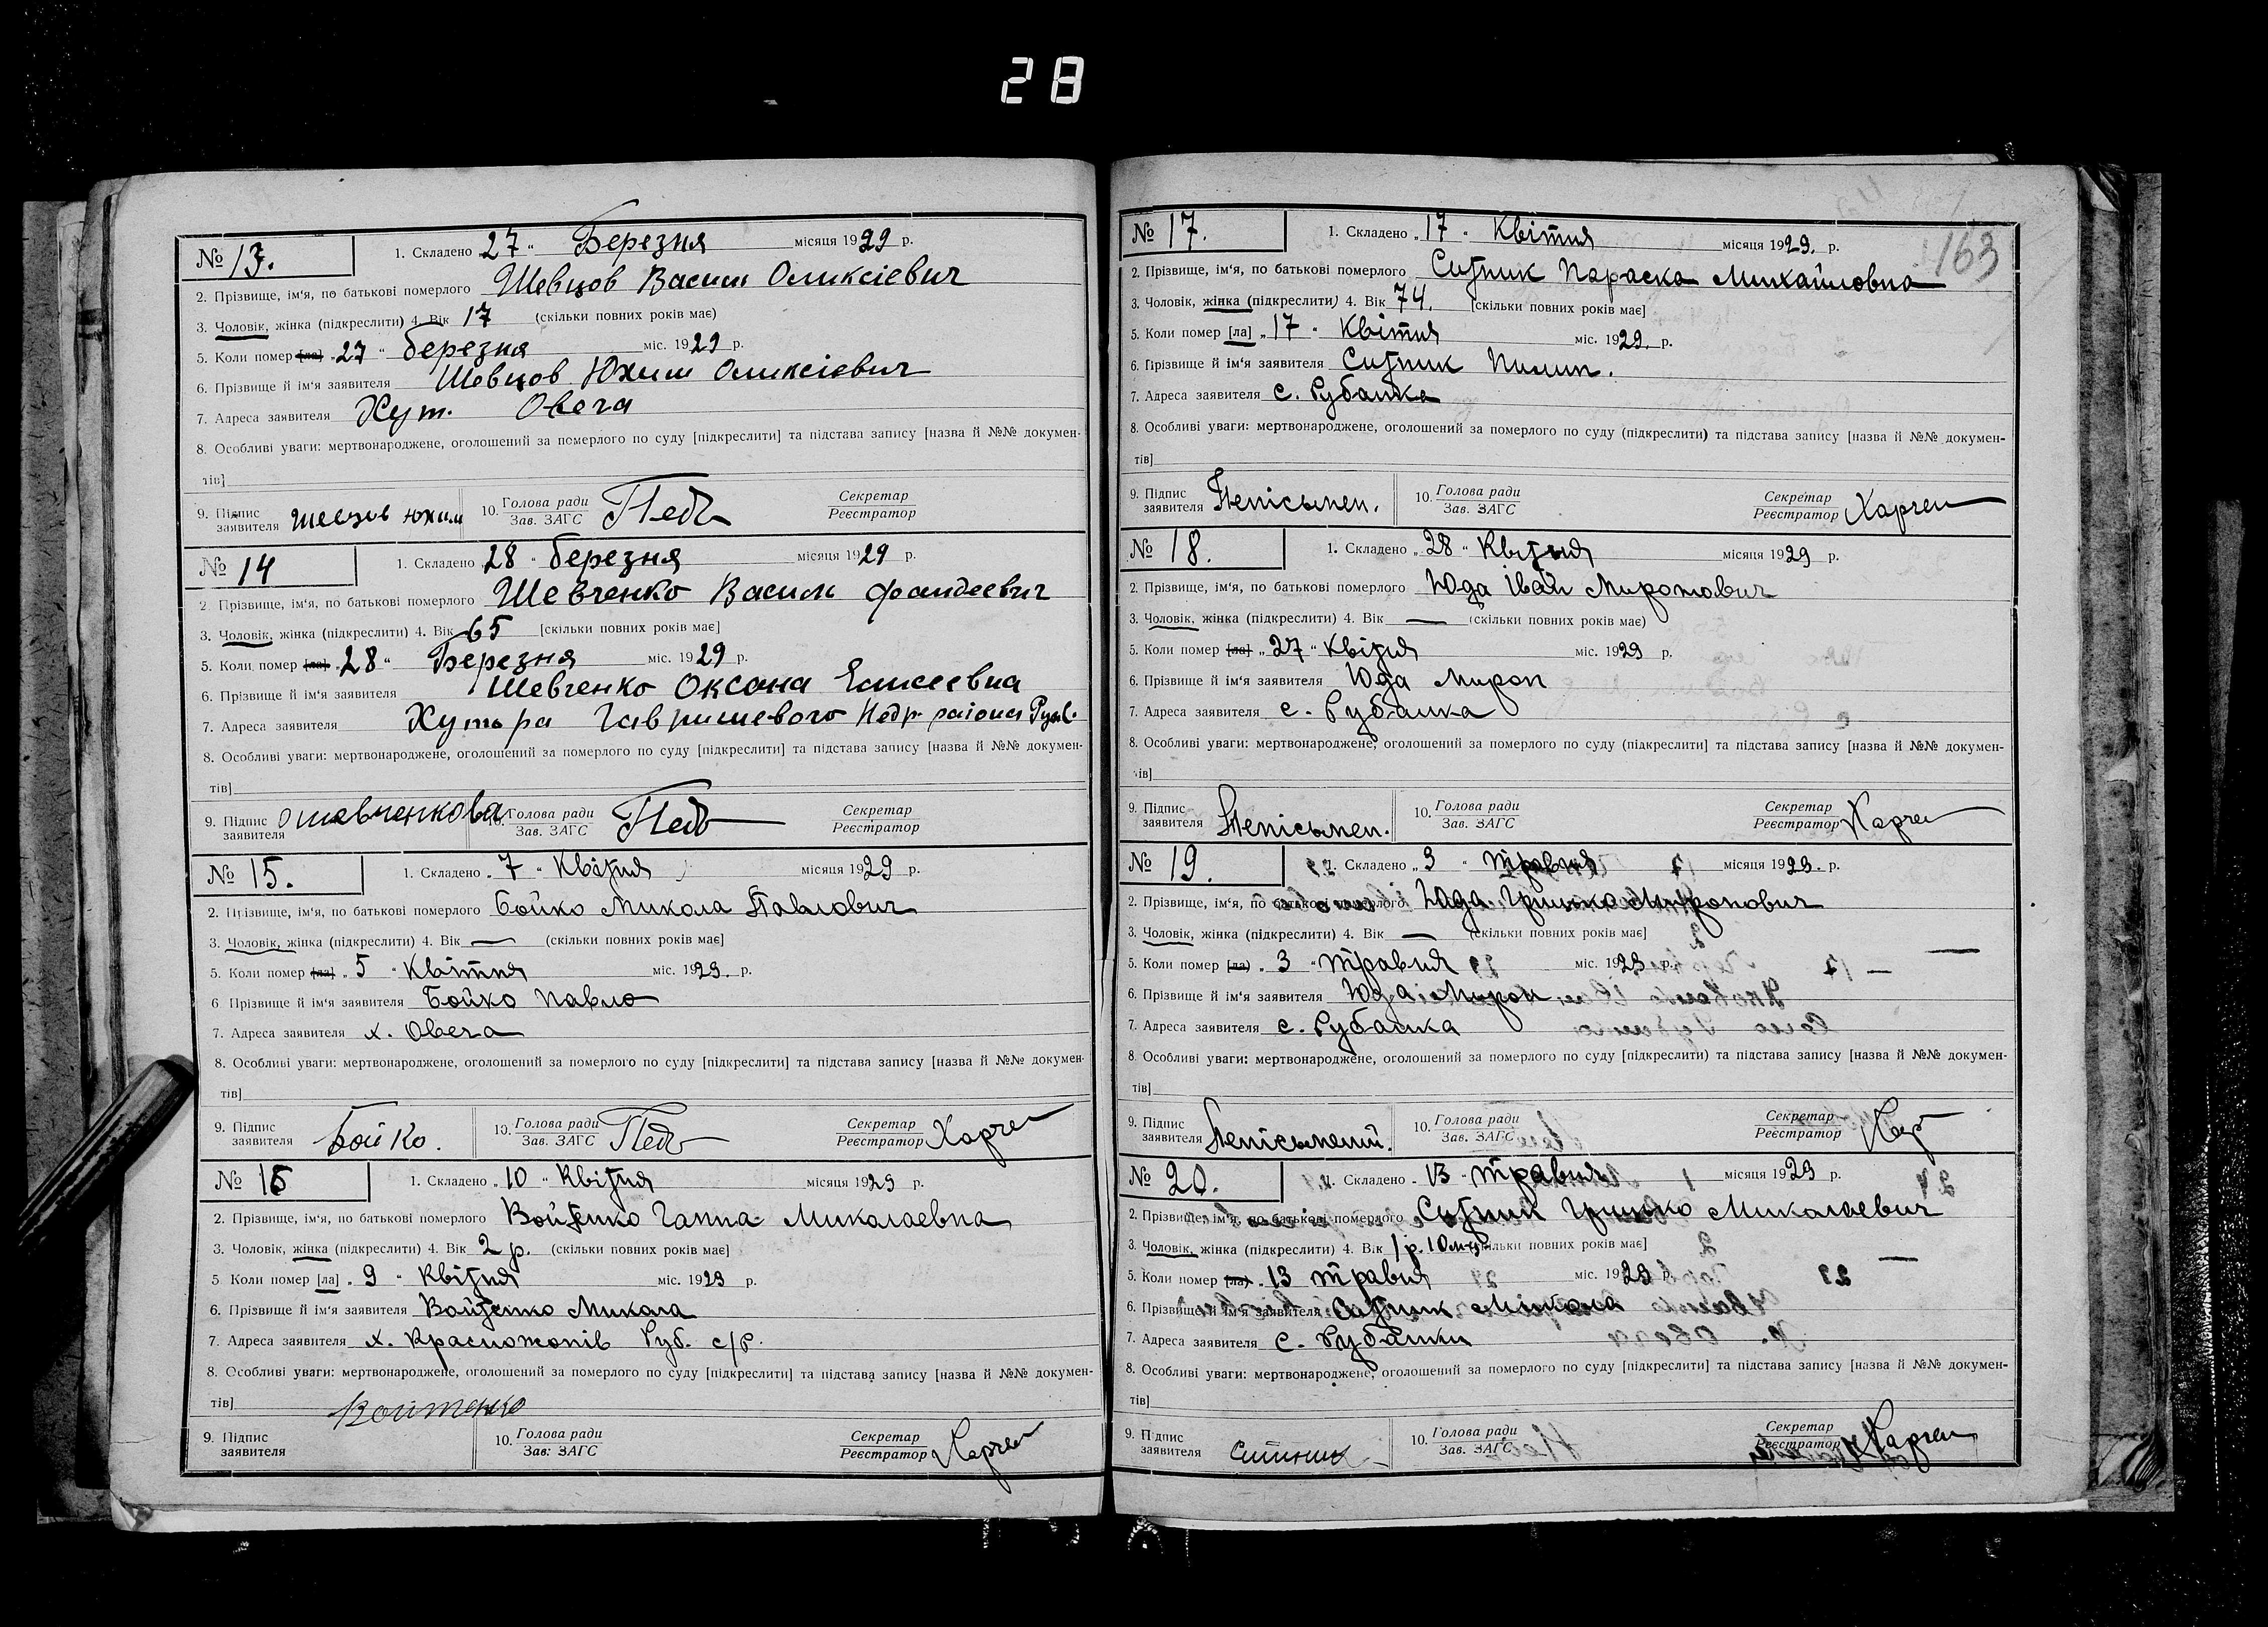 28
№ 13. 1. Складено „27“ Березня місяця 1929 р.
2. Прізвище, ім‘я, по батькові померлого Шевцов Васил Оликсіевич
3. Чоловік, жінка (підкреслити) 4. Вік 17 (скільки повних років має)
5. Коли помер [ла] „27“ березня міс. 1929 р.
6. Прізвище й ім‘я заявителя Шевцов Юхим Оликсіевич
7. Адреса заявителя Хут. Овеча
8. Особливі уваги: мертвонароджене, оголошений за померлого по суду [підкреслити] та підстава запису [назва й №№ докумен-
тів]
9. Підпис заявителя Шевцов Юхим 10. Голова ради Зав. ЗАГС Секретар Реєстратор
№ 14 1. Складено 28 “ березня місяця 1929 р.
2. Прізвище, ім‘я, по батькові померлого Шевченко Василь
3. Чоловік, жінка (підкреслити) 4. Вік 65 [скільки повних років має]
5. Коли помер [ла] „28“ Березня міс. 1929 р.
6. Прізвище й ім‘я заявителя Шевченко Оксана Елисеевна
7. Адреса заявителя Хутора Гавришевого
8. Особливі уваги: мертвонароджене, оголошений за померлого по суду [підкреслити] та підстава запису [назва й №№ докумен-
тів]
9. Підпис заявителя Ошевченкова 10. Голова ради Зав. ЗАГС Секретар Реєстратор
№ 15. 1. Складено „7“ Квітня місяця 1929 р.
2. Прізвище, ім‘я, по батькові померлого Бойко Микола Павлович
3. Чоловік, жінка (підкреслити) 4. Вік — (скільки повних років має]
5. Коли помер [ла] „5“ Квітня міс. 1929. р.
6 Прізвище й ім‘я заявителя Бойко Павло
7. Адреса заявителя х. Овеча
8. Особливі уваги: мертвонароджене, оголошений за померлого по суду [підкреслити] та підстава запису [назва й №№ докумен-
тів]
9. Підпис заявителя Бойко. 10. Голова ради Зав. ЗАГС Секретар Реєстратор Харчен
№ 16 1. Складено „10“ Квітня місяця 1929 р.
2. Прізвище, ім‘я, по батькові померлого Войтенко Ганна Миколаевна
3. Чоловік, жінка (підкреслити) 4. Вік 2 р. (скільки повних років має]
5 Коли помер [ла] „9“ Квітня міс. 1929 р.
6. Прізвище й ім‘я заявителя Войтенко Микола
7. Адреса заявителя х. Красножонів Руб. с/р.
8. Особливі уваги: мертвонароджене, оголошений за померлого по суду [підкреслити] та підстава запису [назва й №№ докумен-
тів] Войтенко
9. Підпис заявителя 10. Голова ради Зав. ЗАГС Секретар Реєстратор Харчен
163
№ 17. 1. Складено „17“ Квітня місяця 1929. р.
2. Прізвище, ім‘я, по батькові померлого Ситник Параска Михайловна
3. Чоловік, жінка (підкреслити) 4. Вік 74. [скільки повних років має]
5. Коли помер [ла] „17“ Квітня міс. 1929. р.
6. Прізвище й ім‘я заявителя Ситник Пилип.
7. Адреса заявителя с. Рубанка
8. Особливі уваги: мертвонароджене, оголошений за померлого по суду (підкреслити) та підстава запису [назва й №№ докумен-
тів]
9. Підпис заявителя Непісьмен. 10. Голова ради Зав. ЗАГС Секретар Реєстратор Харчен
№ 18. 1. Складено „28“ Квітня місяця 1929 р.
2. Прізвище, ім‘я, по батькові померлого Юда Іван Миронович
3. Чоловік, жінка (підкреслити) 4. Вік — (скільки повних років має)
5. Коли помер [ла] „27“ Квітня міс. 1929 р.
6. Прізвище й ім‘я заявителя Юда Мирон
7. Адреса заявителя с. Рубанка
8. Особливі уваги: мертвонароджене, оголошений за померлого по суду (підкреслити] та підстава запису [назва й №№ докумен-
тів]
9. Підпис заявителя Непісьмен. 10. Голова ради Зав. ЗАГС Секретар Реєстратор Харчен
№ 19. 1. Складено „3“ травня місяця 1929. р.
2. Прізвище, ім‘я, по батькові померлого Юда Гришко Миронович
3. Чоловік, жінка (підкреслити) 4. Вік — (скільки повних років має]
5. Коли помер (ла) „3“ травня міс. 1929 р.
6. Прізвище й ім‘я заявителя Юда Мирон
7. Адреса заявителя с. Рубанка
8. Особливі уваги: мертвонароджене, оголошений за померлого по суду (підкреслити) та підстава запису [назва й №№ докумен-
тів]
9. Підпис заявителя Непісьмений. 10. Голова ради Зав. ЗАГС Секретар Реєстратор Хар
№ 20. 1. Складено „13“ травня місяця 1929 р.
2. Прізвище, ім‘я, по батькові померлого Ситник Гришко Миколаевич
3. Чоловік, жінка (підкреслити) 4. Вік 1 р. 10 м-ц (скільки повних років має]
5. Коли помер (ла) „13 травня міс. 1929 р.
6. Прізвище й ім‘я заявителя Ситник Мікола
7. Адреса заявителя с. Рубанки
8. Особливі уваги: мертвонароджене, оголошений за померлого по суду [підкреслити] та підстава запису [назва й №№ докумен-
тів]
9. Підпис заявителя Ситник 10. Голова ради Зав. ЗАГС Секретар Реєстратор Харчен